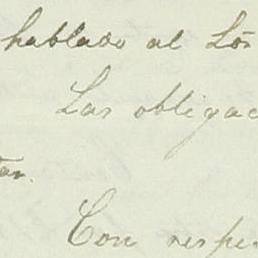 hablado al
Las obligac
Con respe